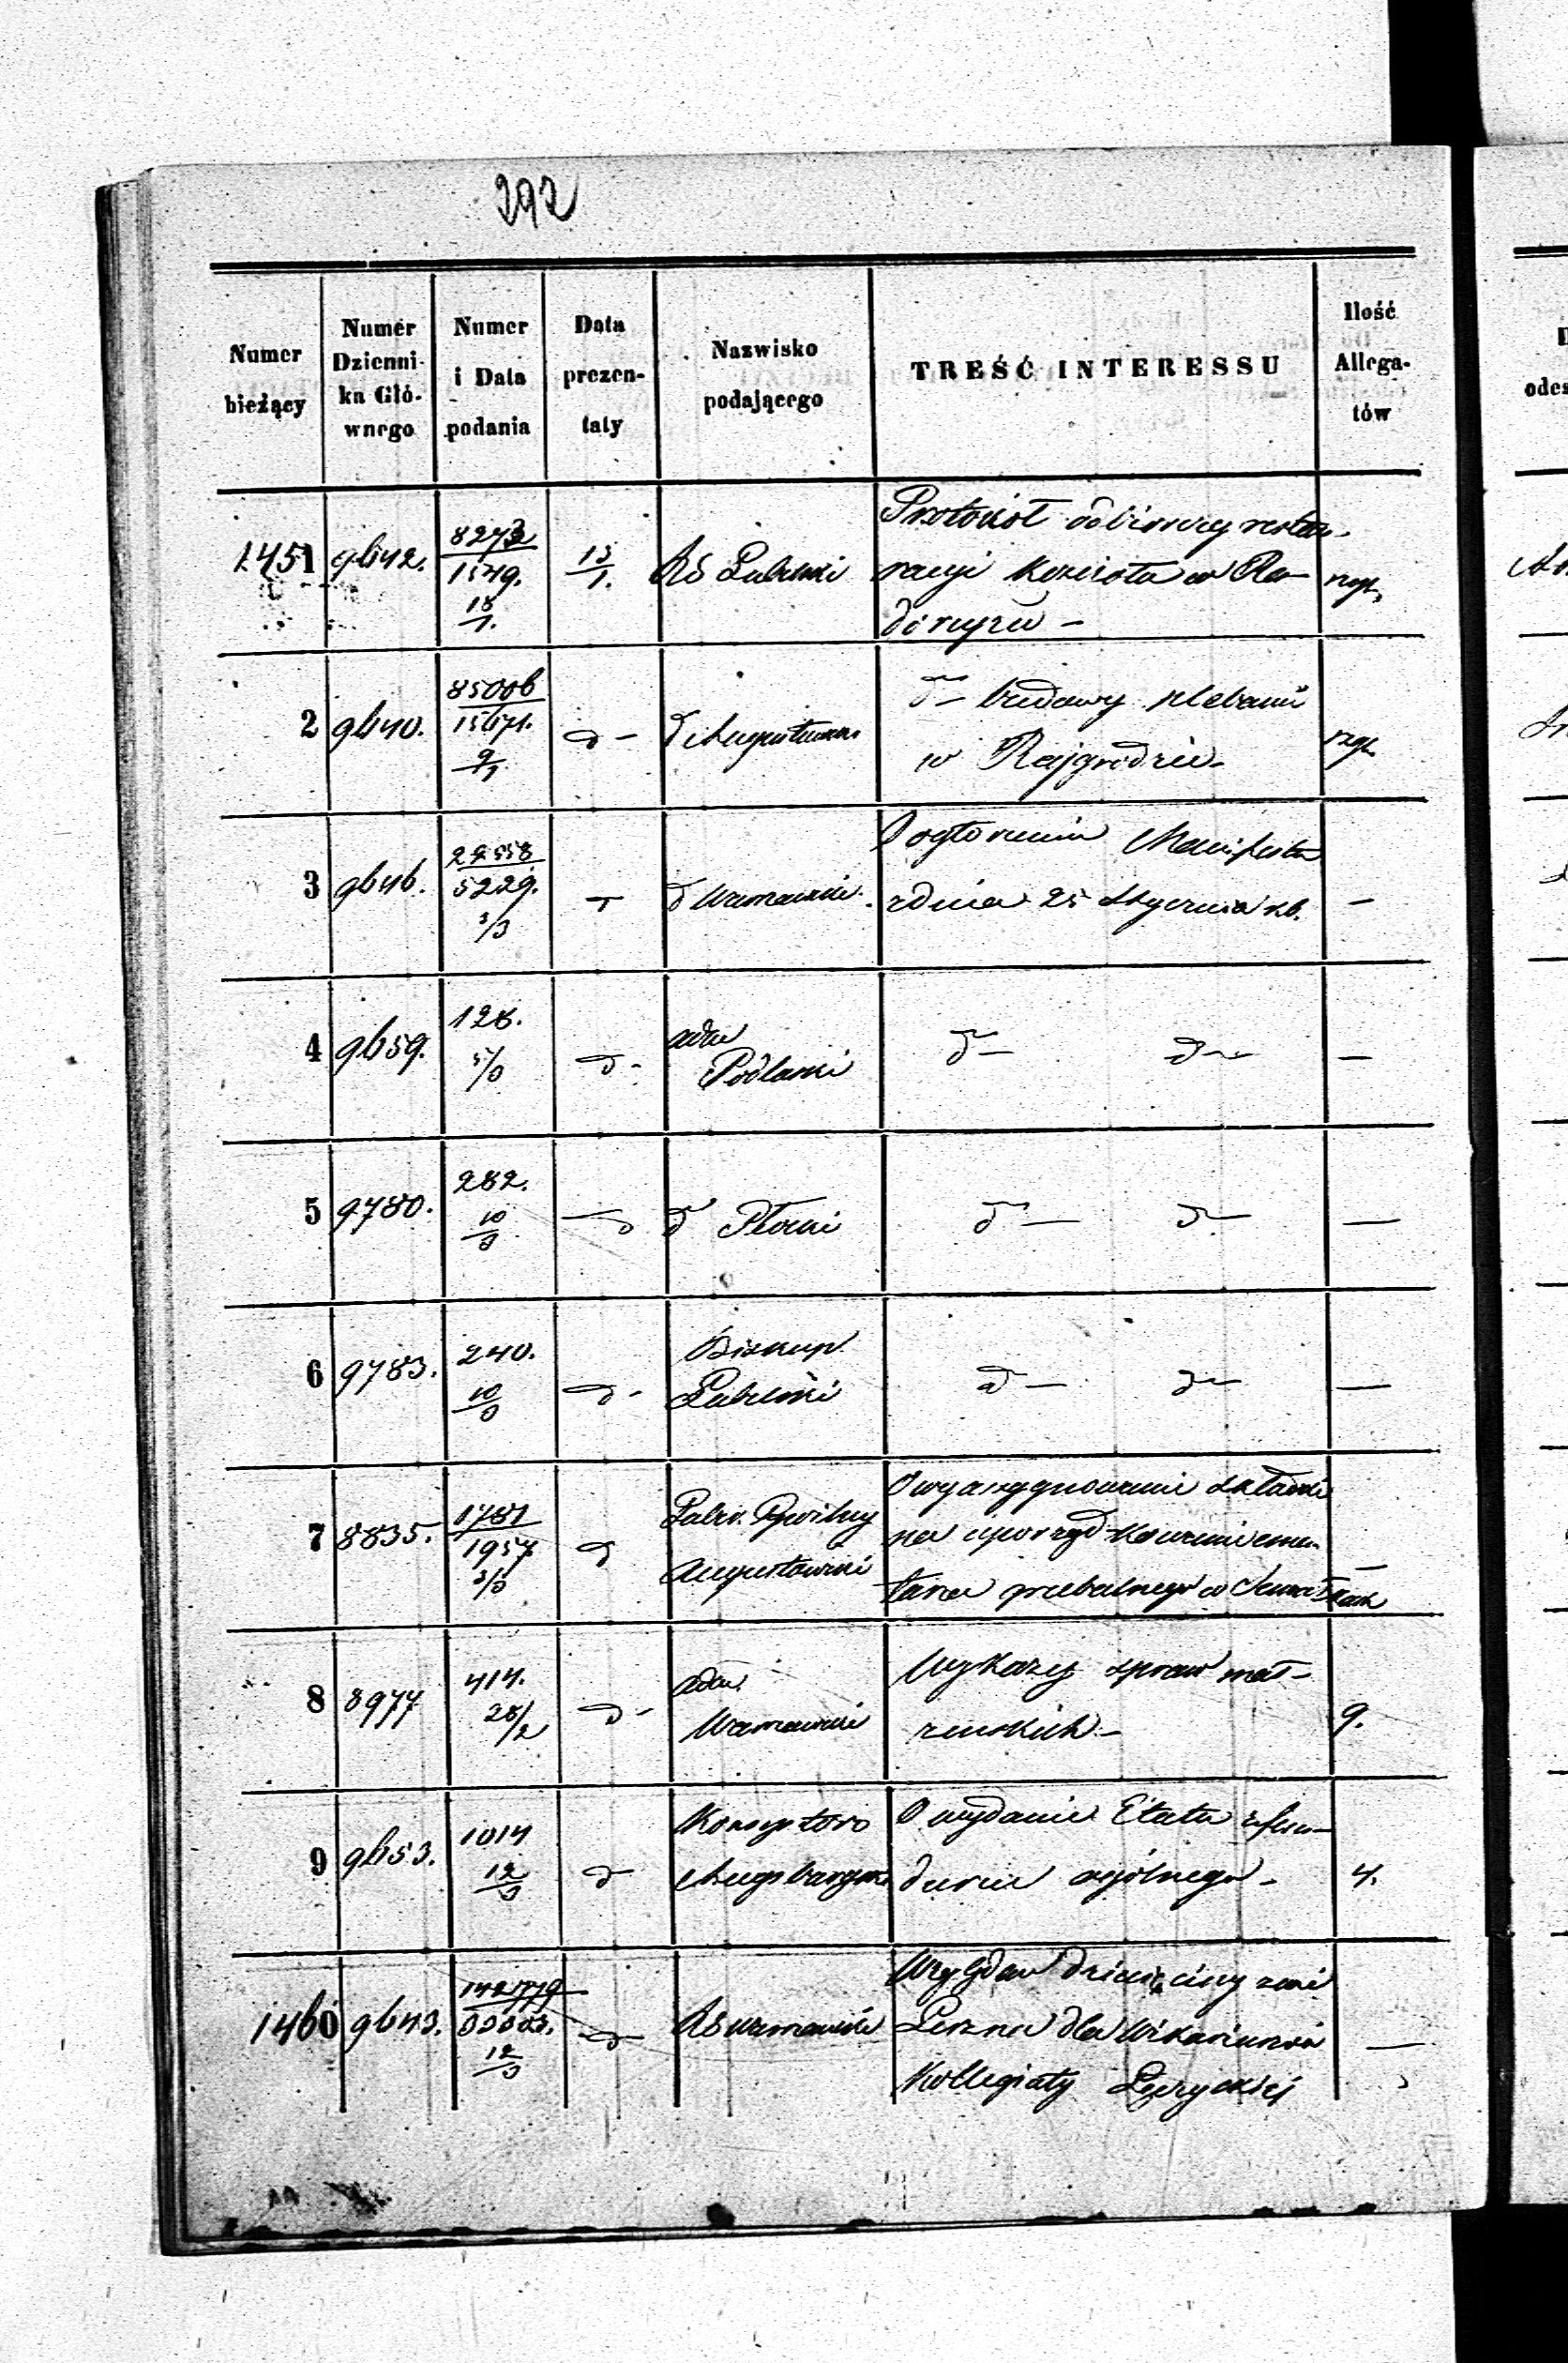 292
Numer bieżący
Numer Dzienni- ka Głó- wnego
Numer i Data podania
Data prezen- taty
Nazwisko podającego
TREŚĆ INTERESSU
Ilość Allega- tów
1451 9642. 8273 1579. 15/1. 15/1. RG Lubelski
Protokół odbiorczy restau-
racyi kościoła w Ra-
dirużu -
2 9640. 85006 15671. 9/1. d - d Augustowski
d - budowy plebanii
w Rajgrodzie -
3 9646. 5229. 3/3 d Warszawski
O ogłoszeniu Manifestu
z dnia 25 Stycznia rb. -
4 9659. 128. 5/3 d - adm Podlaski d - d - -
5 9780. 282. 10/3 - d d Płocki d - d - -
6 9783. 240. 10/3 d - Biskup Lubelski d - d - -
7 8835. 1781 1957 3/3 d Gub. Cywilny Augustowski
O wyassygnowanie składki
na uporządkowanie cmen-
tarza grzebalnego w -
8 8977 414. 28/2 d - adm. Warszawski
Wykazy spraw mał-
żeńskich - 9.
9 9653. 1014 12/3 d Konsystorz Augsburgski
O wydanie Etatu z fun-
duszu ogólnego - 4.
1460 9643. 12/3 d RG Warszawski
Względem dziesięciny z wsi
dla Wikariuszów
Kollegiaty Łęczyckiej -